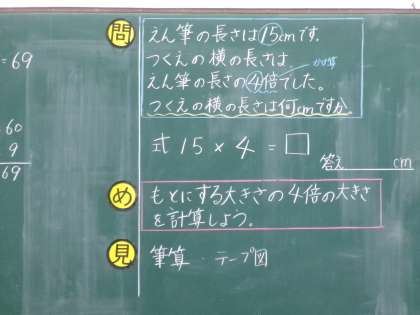 = 69
60
9
69
問
えん筆の長さは15cmです.
つくえの横の長さは
えん筆の長さの4倍でした。
かけ算
つくえの横の長さは何cmですか.
式 15 × 4 = □
答え cm
め
もとにする大きさの4倍の大きさ
を計算しよう。
見
筆算 ・ テープ図